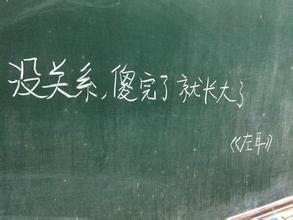 没关系,傻完了就长大了
《左耳》